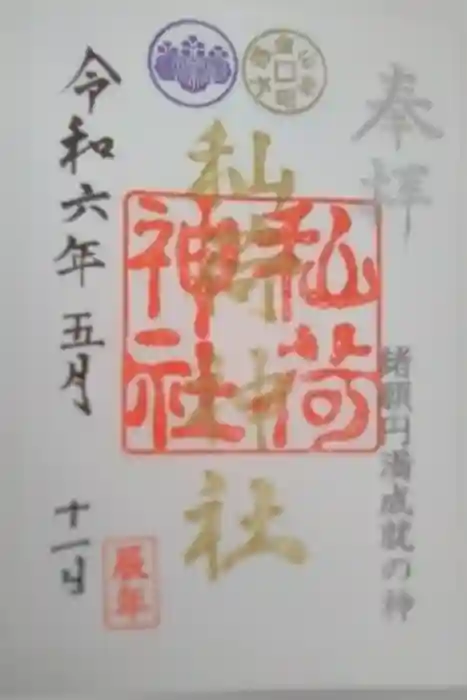 奉拝
諸願円満成就の神
秈荷神社
秈荷
神社
令和六年 五月 十一日
辰年